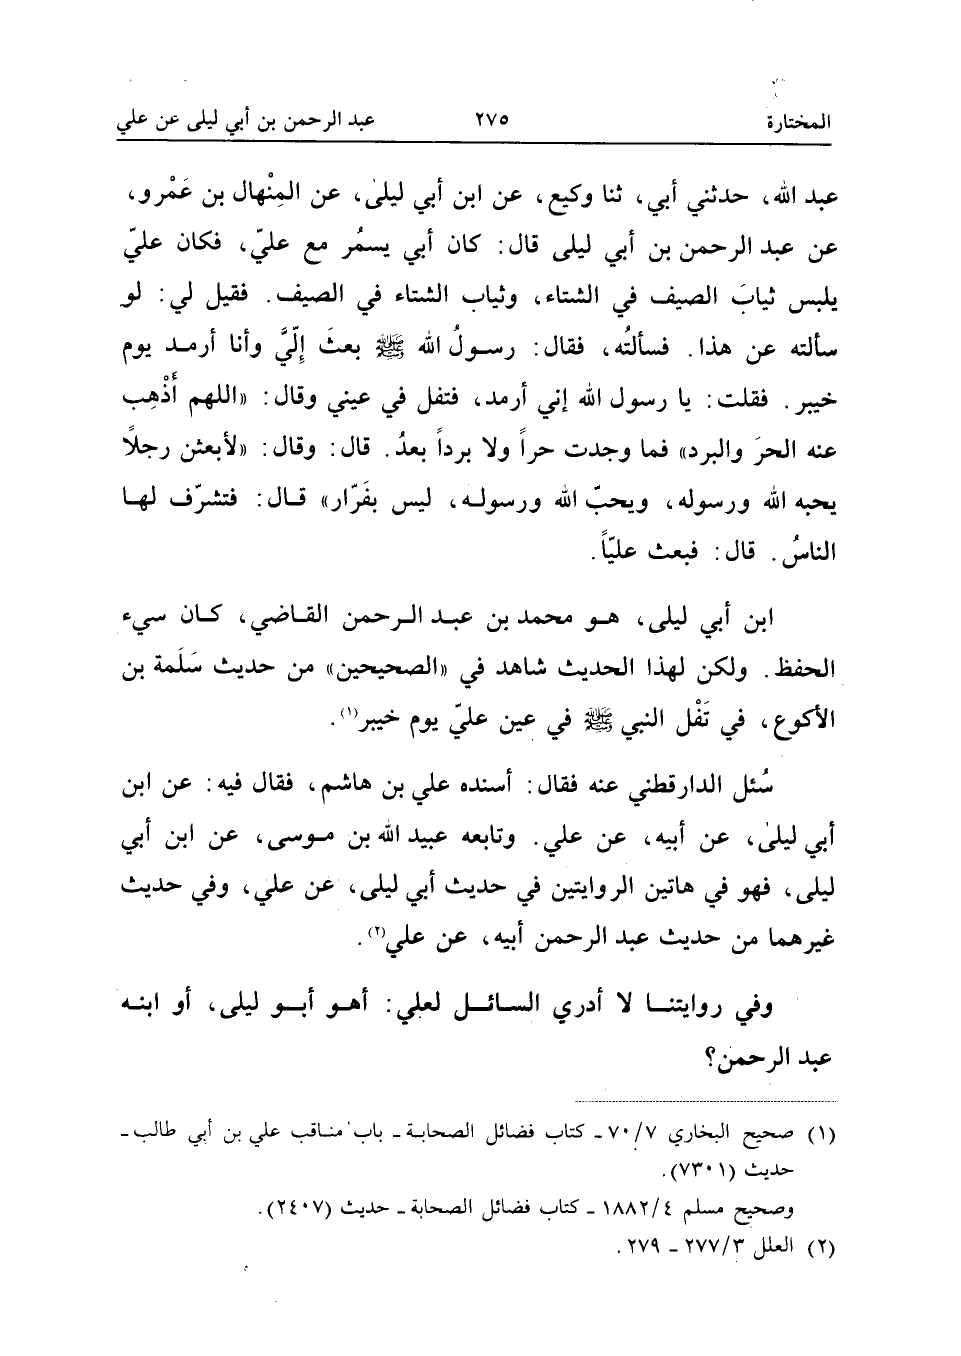 المختارة ٢٧٥ عبد الرحمن بن أبي ليلى عن علي
عبد الله، حدثني أبي، ثنا وكيع، عن ابن أبي ليلىٰ، عن المِنْهال بن عَمْرو،
عن عبد الرحمن بن أبي ليلى قال: كان أبي يسمُر مع عليّ، فكان عليّ
يلبس ثيابَ الصيف في الشتاء، وثياب الشتاء في الصيف. فقيل لي: لو
سألته عن هذا. فسألتُه، فقال: رسولُ الله ﷺ بعثَ إِلَيَّ وأنا أرمد يوم
خيبر. فقلت: يا رسول الله إني أرمد، فتفل في عيني وقال: «اللهم أَذْهِب
عنه الحرَ والبرد» فما وجدت حراً ولا برداً بعدُ. قال: وقال: «لأبعثن رجلاً
يحبه الله ورسوله، ويحبّ الله ورسوله، ليس بفَرّار» قال: فتشرّف لها
الناسُ. قال: فبعث عليّاً.
ابن أبي ليلى، هو محمد بن عبد الرحمن القاضي، كان سيء
الحفظ. ولكن لهذا الحديث شاهد في «الصحيحين» من حديث سَلَمة بن
الأكوع، في تَفْل النبي ﷺ في عين عليّ يوم خيبر(١).
سُئل الدارقطني عنه فقال: أسنده علي بن هاشم، فقال فيه: عن ابن
أبي ليلىٰ، عن أبيه، عن علي. وتابعه عبيد الله بن موسى، عن ابن أبي
ليلى، فهو في هاتين الروايتين في حديث أبي ليلى، عن علي، وفي حديث
غيرهما من حديث عبد الرحمن أبيه، عن علي(٢).
وفي روايتنا لا أدري السائل لعلي: أهو أبو ليلى، أو ابنه
عبد الرحمن؟
(١) صحيح البخاري ٧٠/٧ ـ كتاب فضائل الصحابة ـ باب مناقب علي بن أبي طالب ـ
حديث (٧٣٠١).
وصحيح مسلم ١٨٨٢/٤ ـ كتاب فضائل الصحابة ـ حديث (٢٤٠٧).
(٢) العلل ٢٧٧/٣ ـ ٢٧٩.